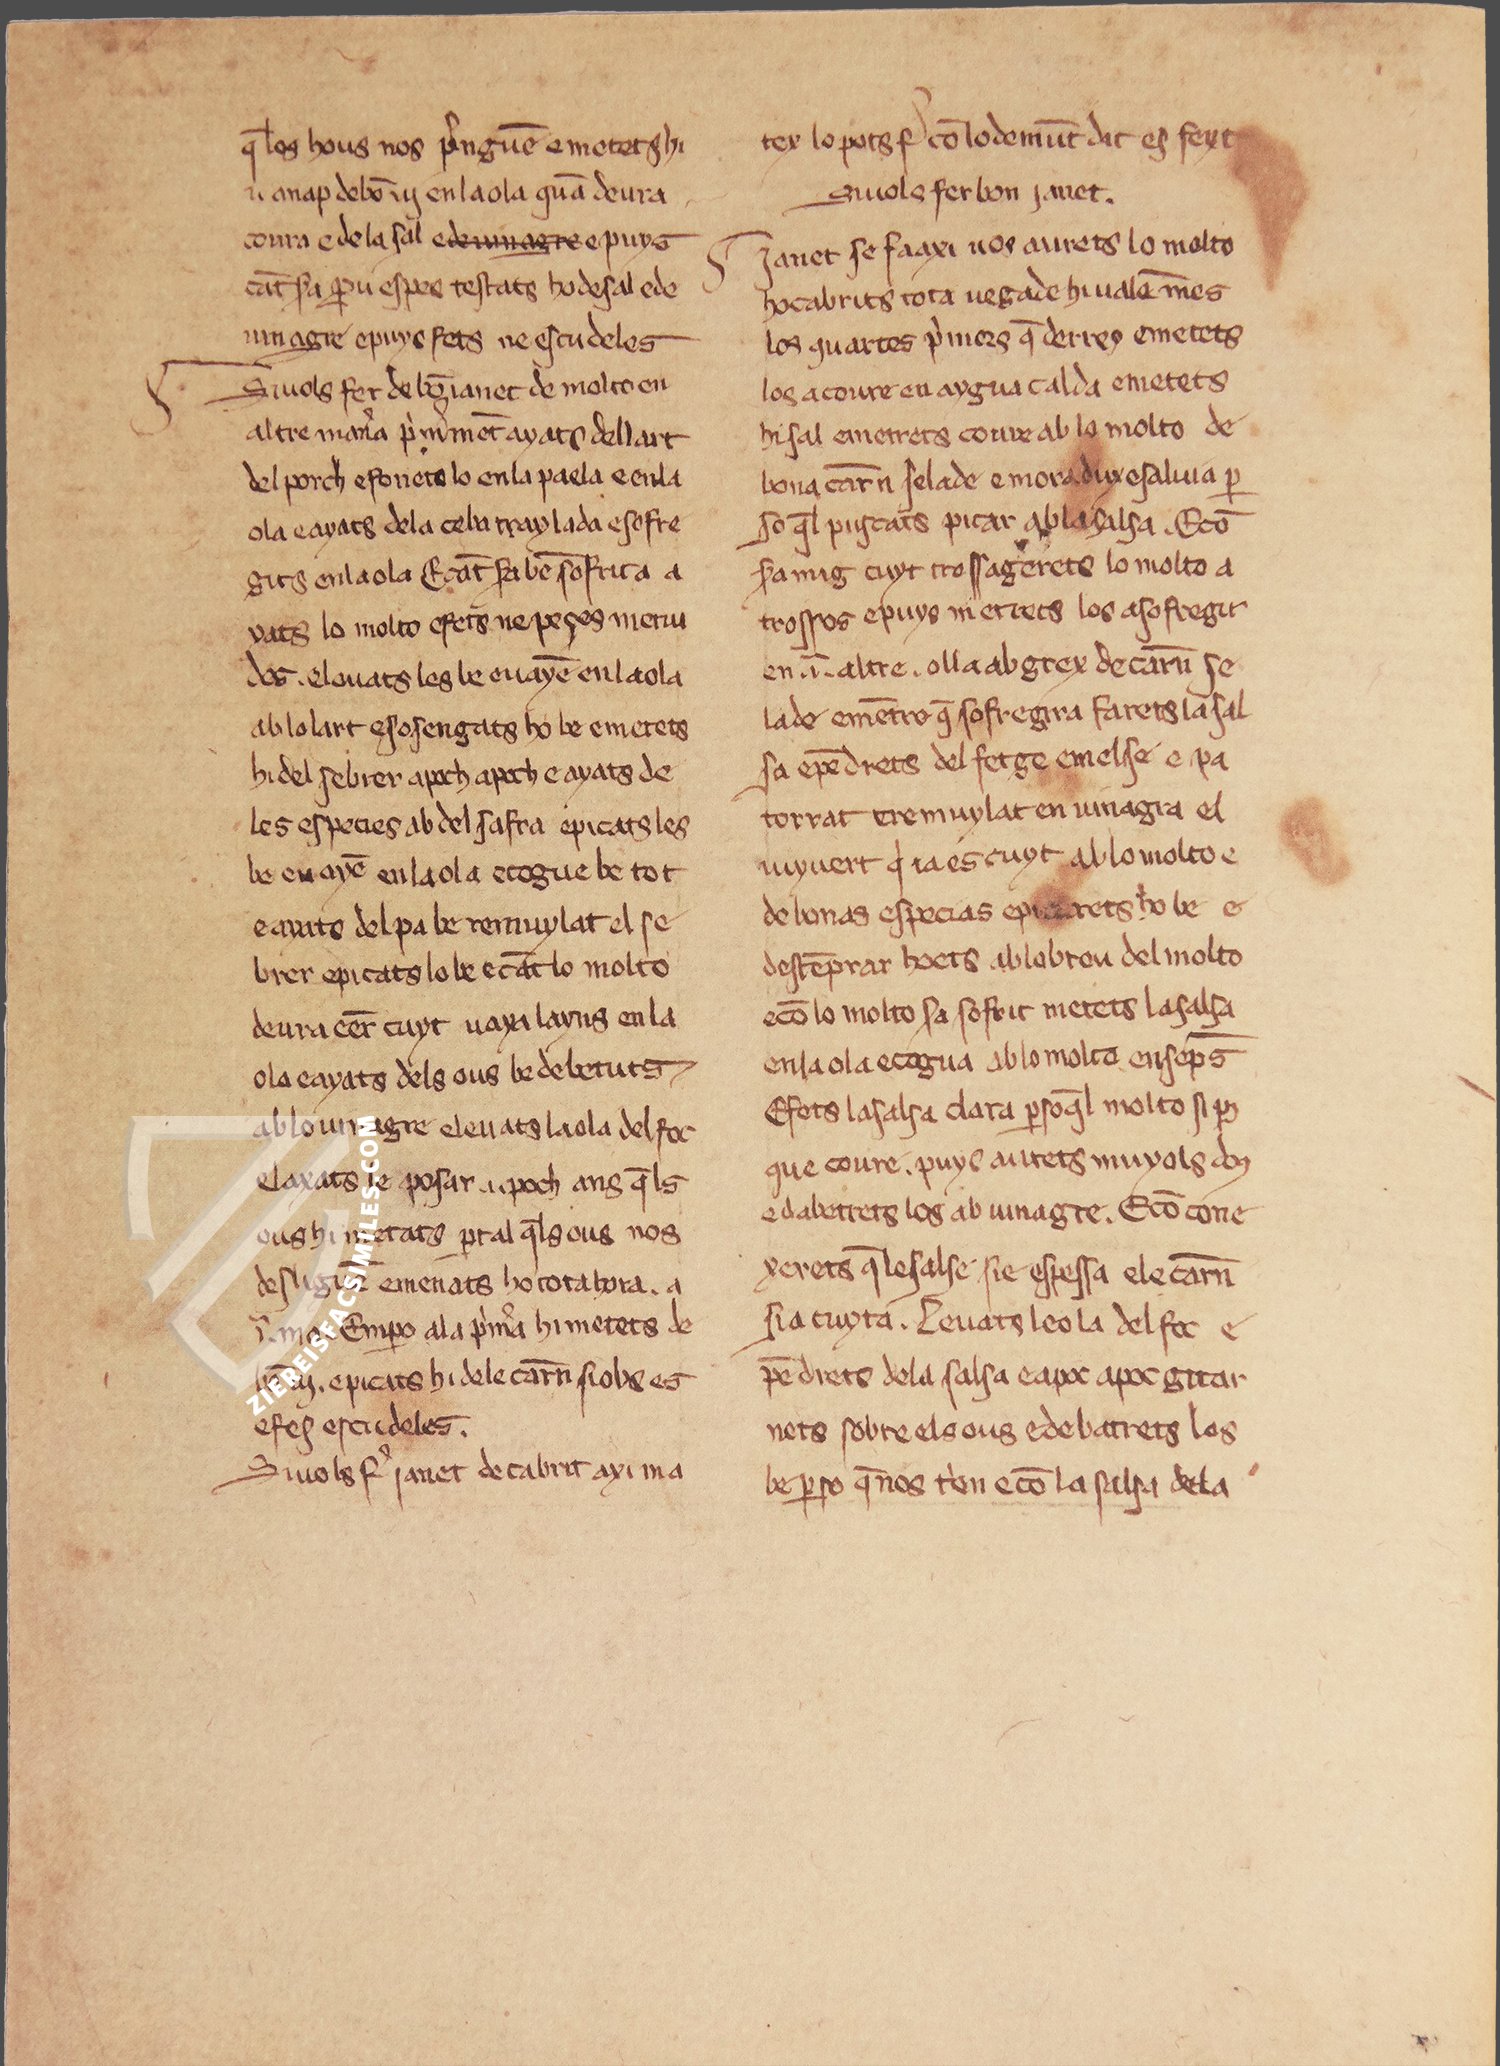 q̄ los hous nos p̄nguē e metets hi
.i. anap de bō vy en la ola quā deura
coura e de la sal e de uinagre e puys
cāt s̄a p̱ u espes testats ho de sal e de
uinagre e puys fets ne escudeles
Si uols fer de bō janet de molto en
altre man̉a p̉m̉amēt ayats del lart
del porch e fonets lo en la paela e en la
ola e ayats dela ceba traylada e sofre
gits en la ola E cāt s̄a bē sofrita a
yats lo molto e fets ne peçes menu
des . e leuats les be e uayē en la ola
ab lo lart e sosengats ho be e metets
hi del sebrer a poch a poch e ayats de
les especies ab del safra e picats les
be e uayē en la ola e cogue be tot
e ayats del pa be remuylat el se
brer e picats lo be e cāt lo molto
deura cēr cuyt uaya layns en la
ola e ayats dels ous be debetuts
ab lo uinagre e leuats la ola del foc
e laxats le posar .i. poch ans q̄ls
ous hi metats p̱ tal q̄ls ous nos
desliguē e menats ho tota hora . a
.i. ma . Empo a la p̉m̉a hi metets de
bō vy . e picats hi de le carn si obs es
e fes escudeles .
Si uols f̉ janet de cabrit axi ma
tex lo pots f̉ cō lo demūt dit es feyt
Si uols fer bon janet .
Janet se fa axi uos aurets lo molto
ho cabrits tota uegade hi ualē mēs
los quartes p̉mers q̄ derrers e metets
los a coure en aygua calda e metets
hi sal e metrets coure ab lo molto de
bona carn selade e moraduix e saluia p̱
so q̄l puscats picar ab la salsa . E cō
s̄a mig cuyt trossagerets lo molto a
trossos e puys metrets los a sofregir
en .i. altre . olla ab grex de carn se
lade e mētre q̄ sofregira farets la sal
sa e pēdrets del fetge e melse e pa
torrat e remuylat en uinagra el
iuyuert q̉ ia es cuyt ab lo molto e
de bonas especias e picarets ho be e
destēprar hoets ab lo brou del molto
e cō lo molto s̄a sofrit metets la salsa
en la ola e cogua ab lo molto ensēps
E fets la salsa clara p̱ so q̄l molto si pu
gue coure . puys aurets muyols dou
e dabatrets los ab uinagre . E cō cone
xerets q̄ le salse sie espessa e le carn
sia cuyta . Leuats le ola del foc e
pēdrets dela salsa e a poc a poc gitar
nets sobre els ous e debatrets los
be p̱ so q̄ nos t̉en e cō la salsa de la